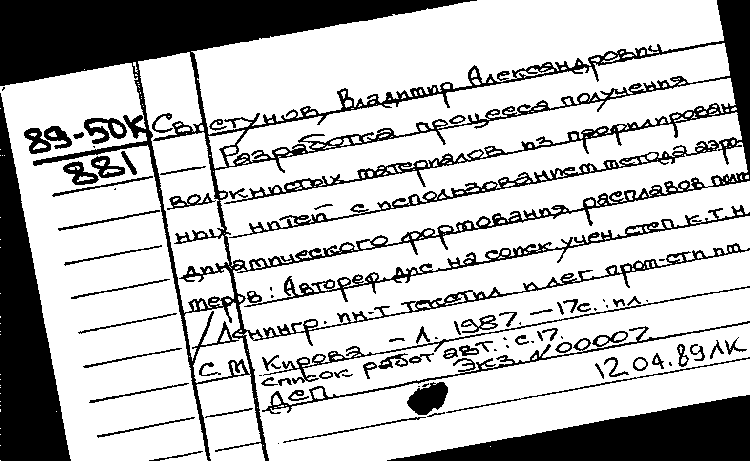 89-50К
881
Свистунов, Владимир Александрович
Разработка процесса получения
волокнистых материалов из профилирован
ных нитей с использованием метода аэро-
динамического формования расплавов поли
меров: Автореф. дис. на соиск учен. степ. к.т.н.
/ Ленингр. ин-т текстил и лег. пром-сти им.
С.М. Кирова. – Л., 1987. – 17с.: ил.
Список работ авт.: с.17.
ДСП. Экз. № 00007.
12.04.89 ЛК